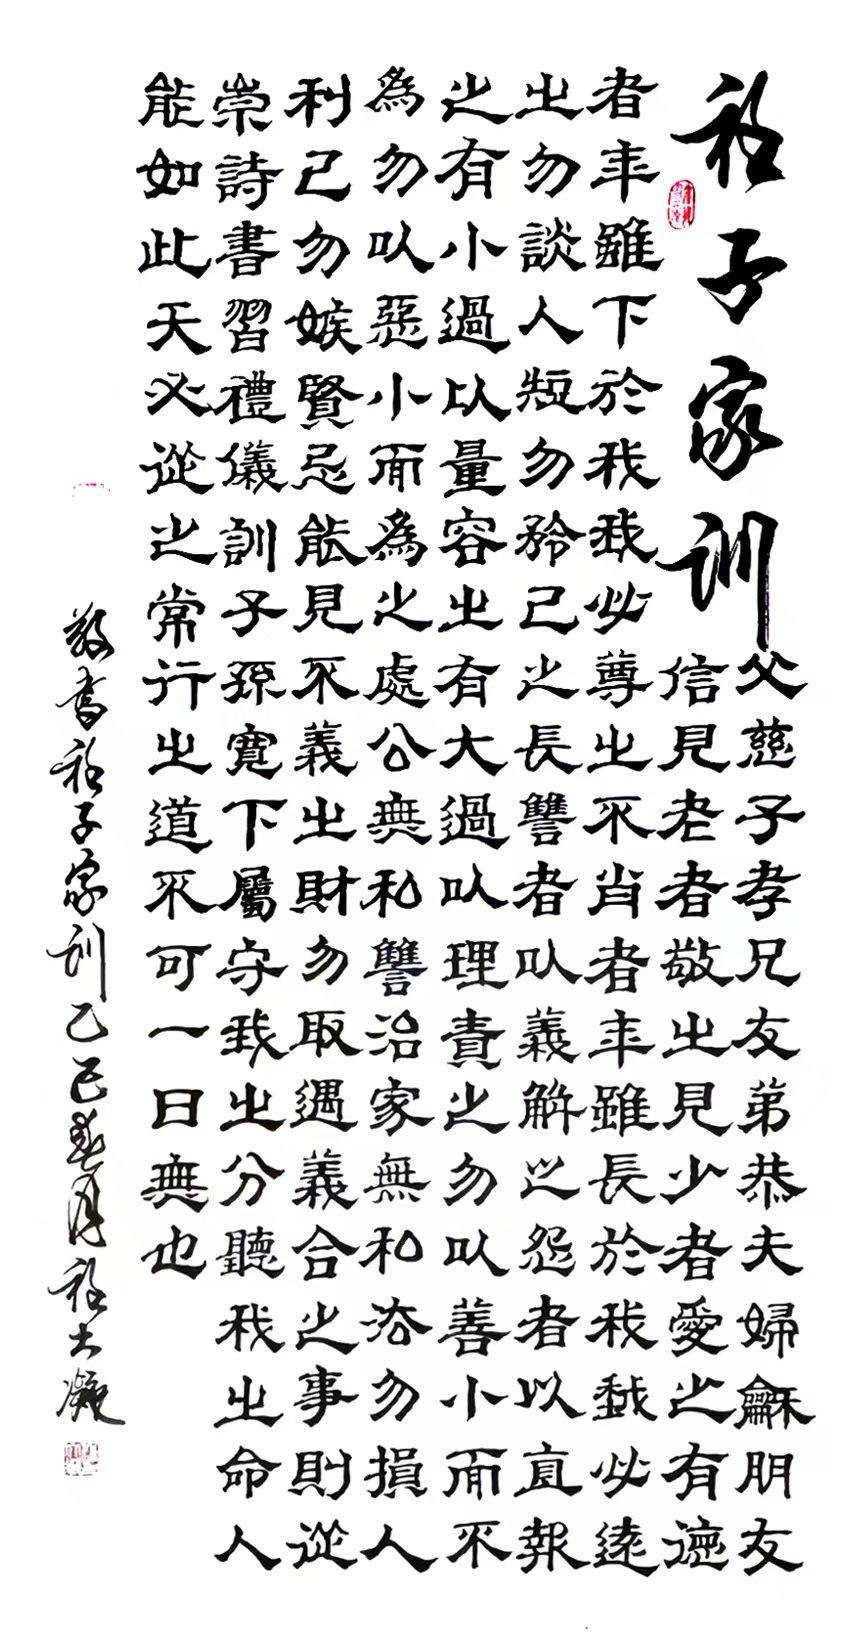 子家训
父慈子孝兄友弟恭夫婦龢朋友
信見老者敬之見少者愛之有德
者年雖下於我我必尊之不肖者年雖長於我我必遠
之勿談人短勿矜己之長讐者以義解之怨者以直報
之有小過以量容之有大過以理責之勿以善小而不
為勿以惡小而為之處公無私讐治家無私法勿損人
利己勿嫉賢忌能見不義之財勿取遇義合之事則從
崇詩書習禮儀訓子孫寬下屬守我之分聽我之命人
能如此天必從之常行之道不可一日無也
敬書子家训乙巳春月大凝